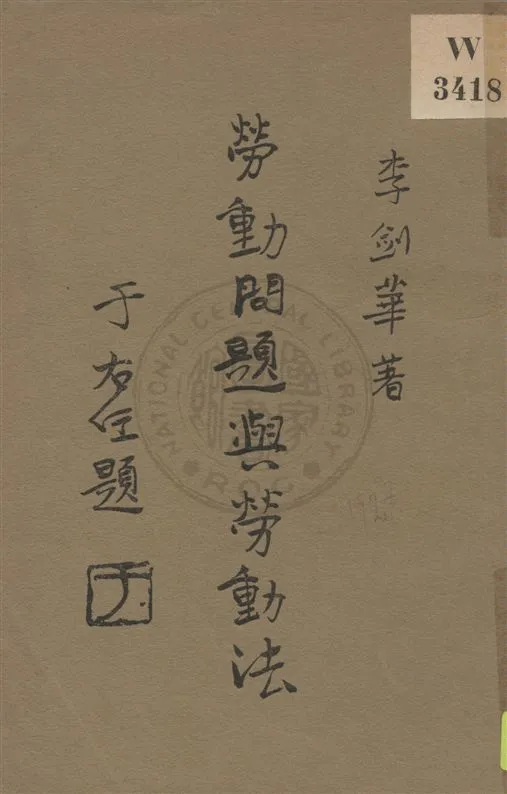 W
3418
李劍華著
勞動問題與勞動法
于右任題
于
NATIONAL CENTRAL LIBRARY
R.O.C.